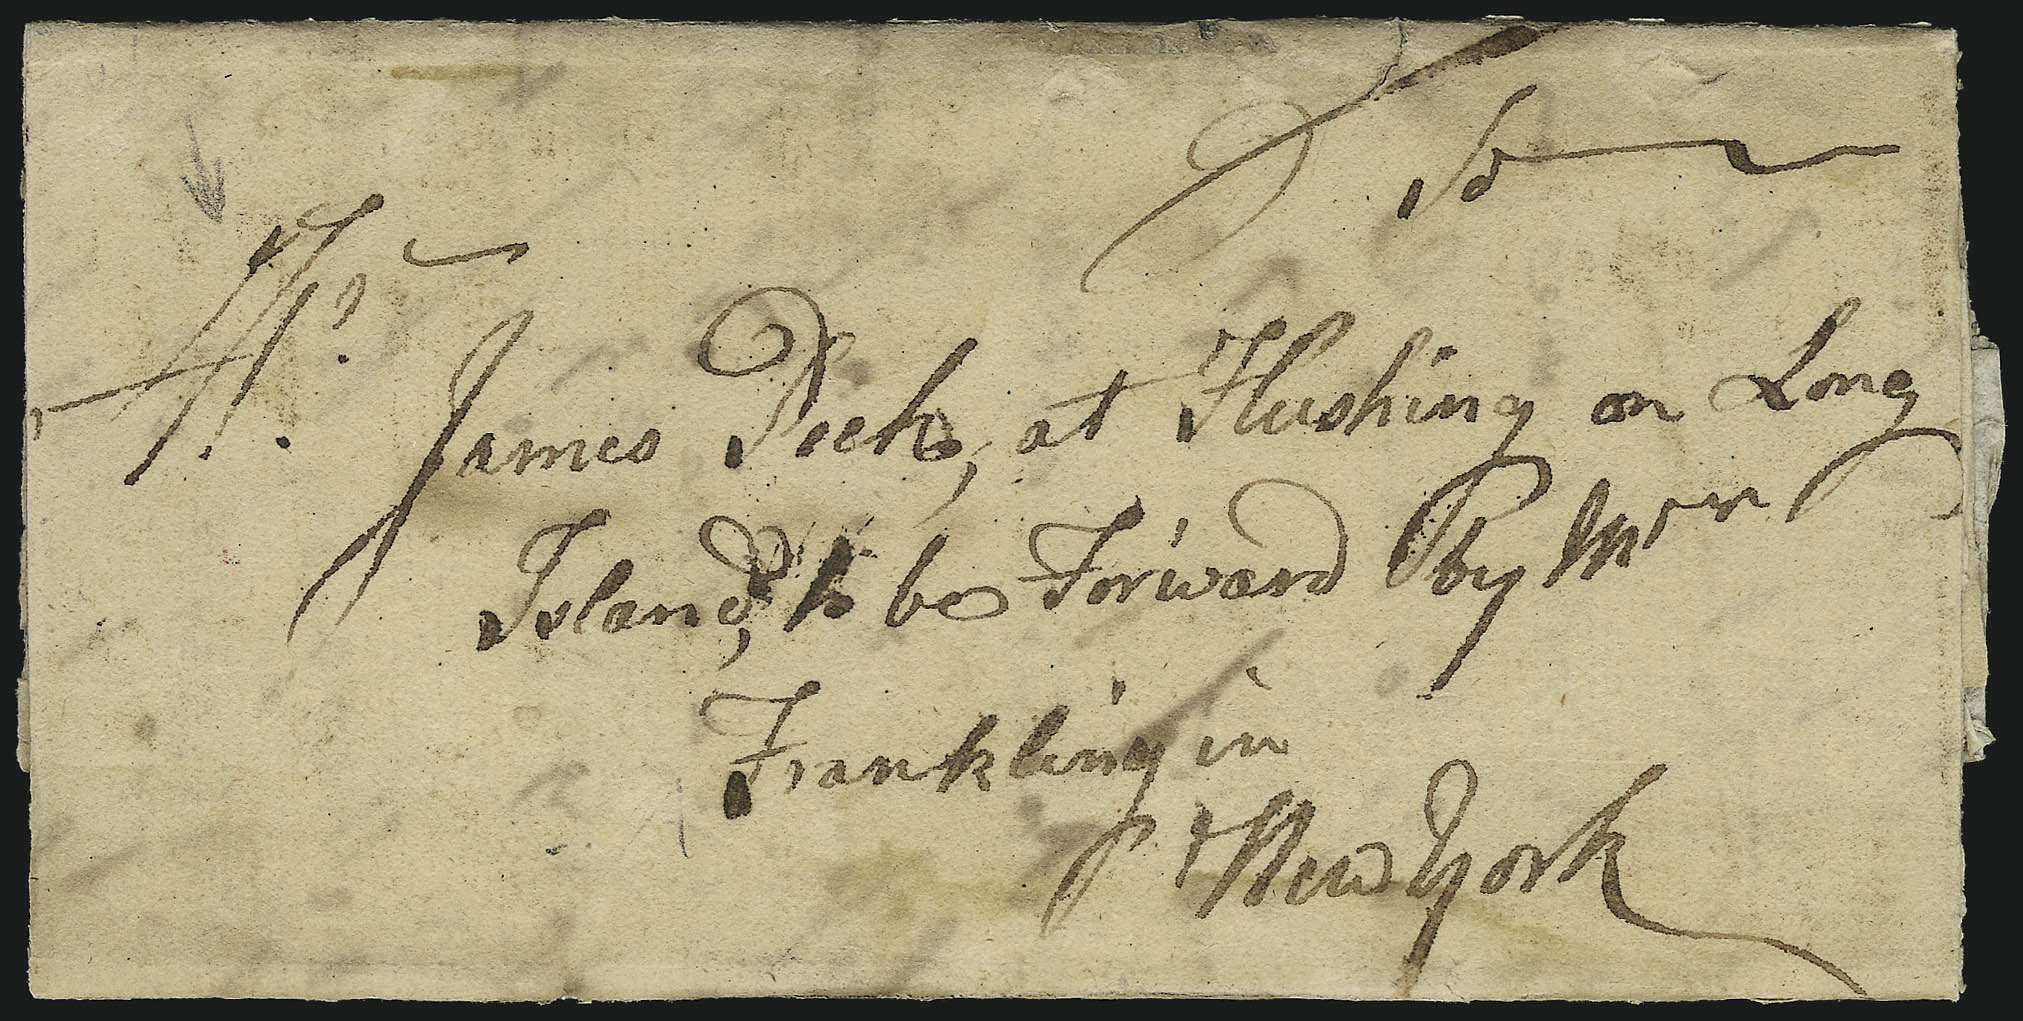 To
James Peek, at Flushing on Long
Island, to be Forward by Mr
Frankling in
New York